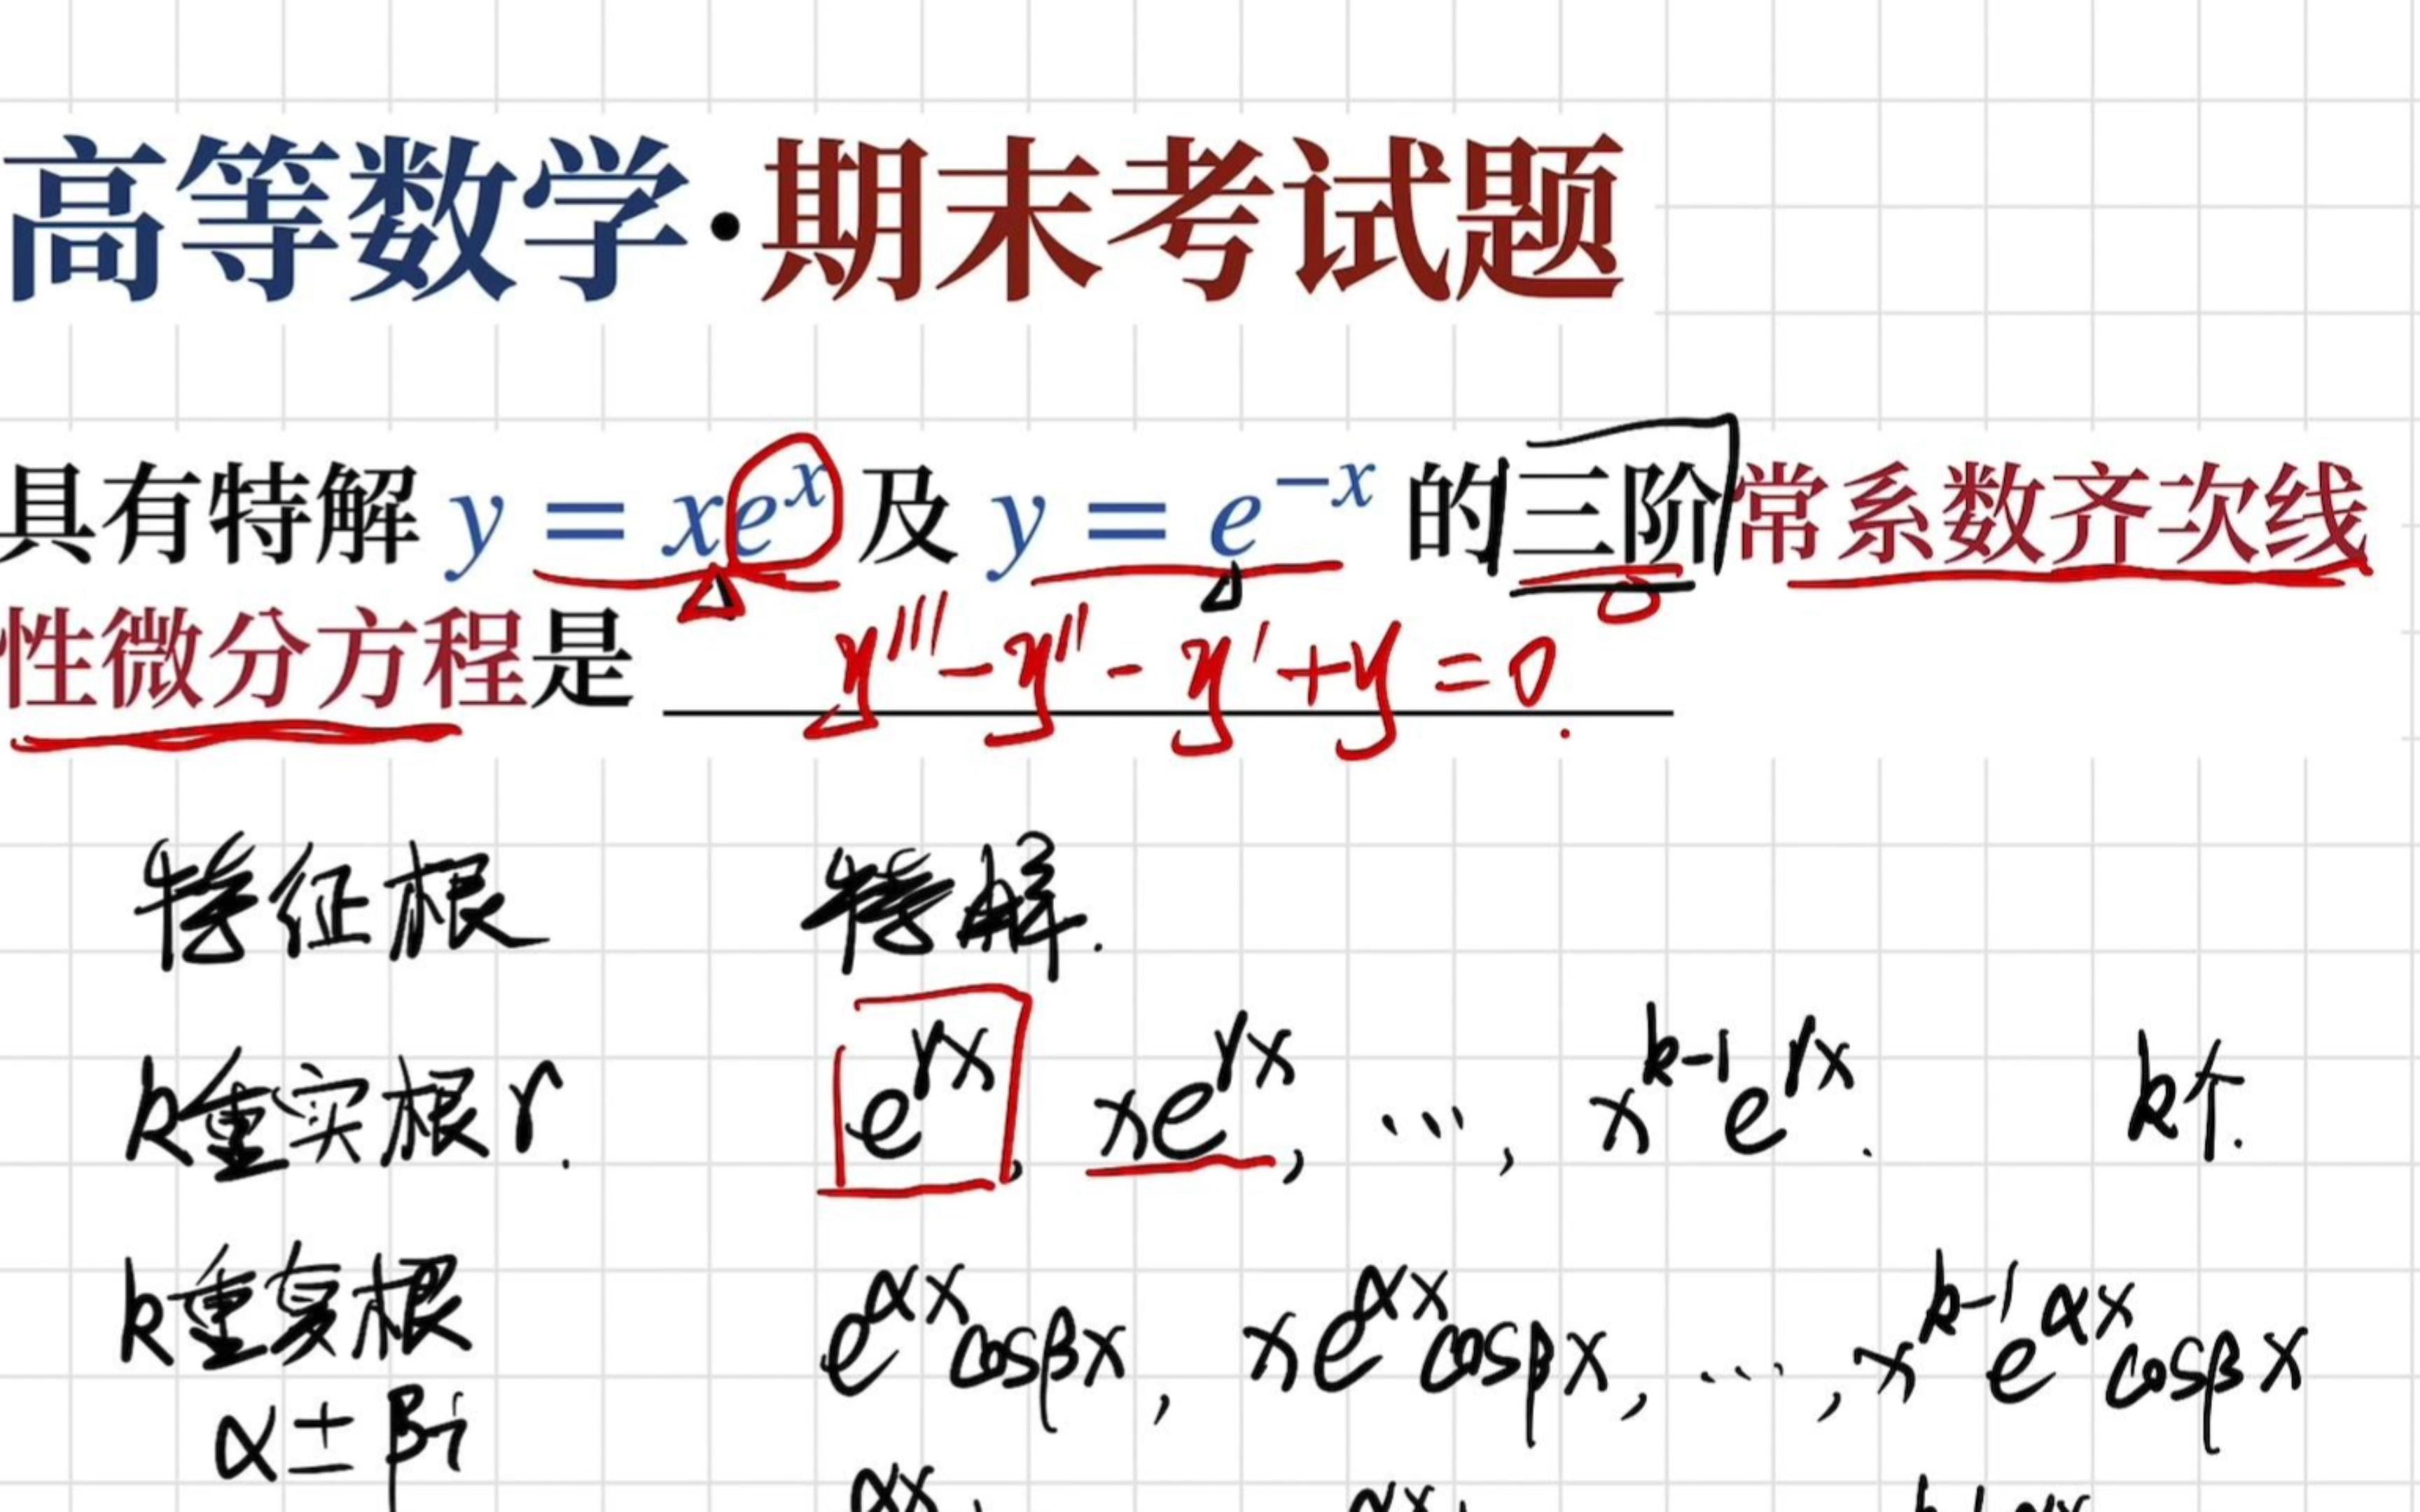 高等数学·期末考试题
具有特解 y = xeˣ 及 y = e⁻ˣ 的三阶常系数齐次线
性微分方程是 y''' - y'' - y' + y = 0.
特征根 特解.
k重实根r. e^{rx}, xe^{rx}, ..., x^{k-1}e^{rx}. k个.
k重复根 e^{αx}cosβx, xe^{αx}cosβx, ..., x^{k-1}e^{αx}cosβx
α±βi